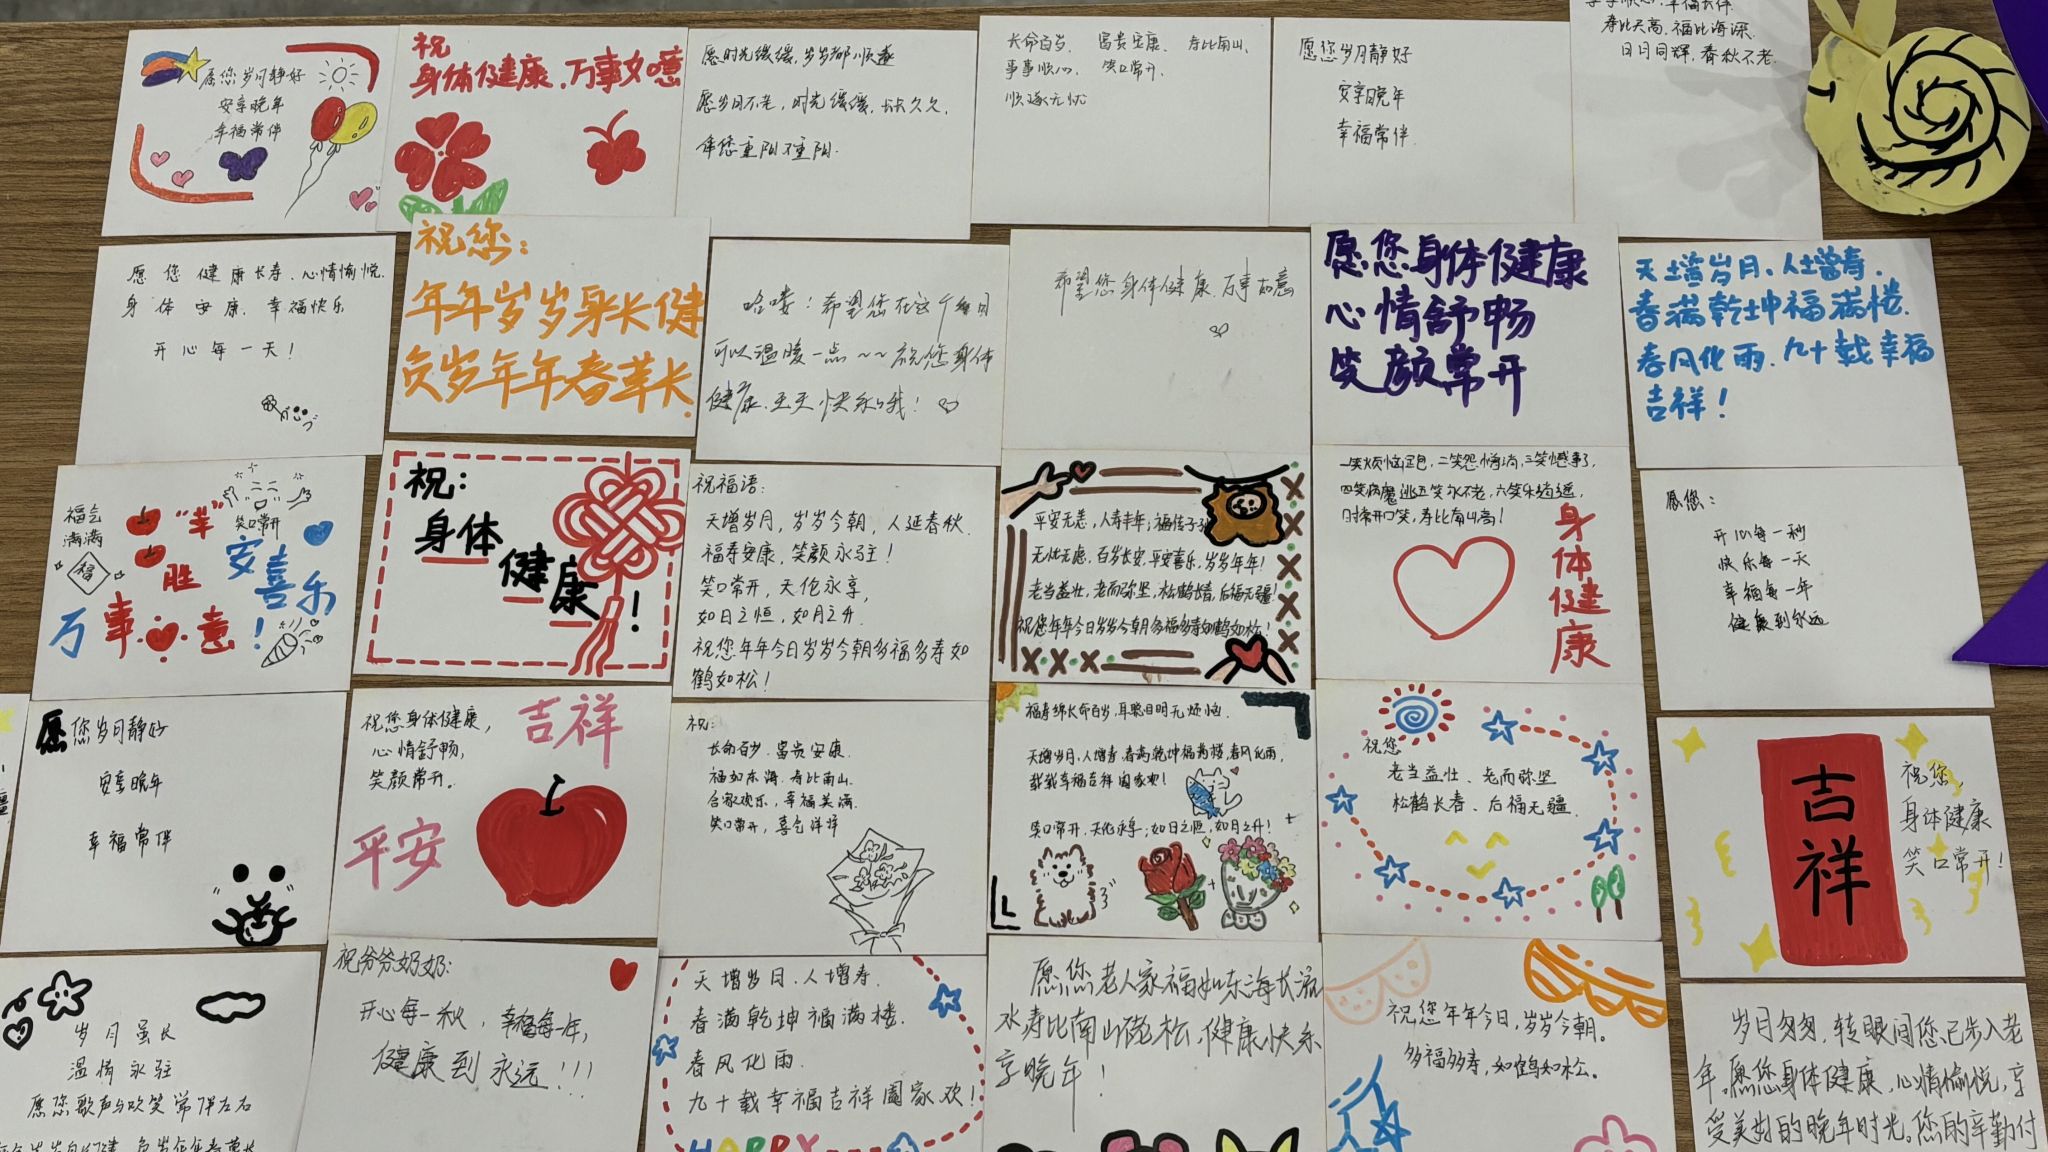 愿您岁月静好
安享晚年
幸福常伴
祝
身体健康、万事如意
愿时光缓缓，岁岁都顺遂
愿岁月不老，时光缓缓，长长久久，
伴您重阳又重阳.
长命百岁、富贵安康、寿比南山、
事事顺心、笑口常开、
顺遂无忧
愿您岁月静好
安享晚年
幸福常伴.
寿比天高，福比海深
日月同辉，春秋不老.
愿您健康长寿、心情愉悦、
身体安康、幸福快乐
开心每一天！
祝您：
年年岁岁身长健
负岁年年春草长.
哈喽！希望您在这个
可以温暖一点~~祝您身体
健康、天天快乐哦！
希望您身体健康、万事如意
愿您身体健康
心情舒畅
笑颜常开
天增岁月、人增寿.
春满乾坤福满楼.
春风化雨、九十载幸福
吉祥！
福气
满满
福
“幸”
胜
笑口常开
安喜乐
万事意！
祝：
身体
健康！
祝福语：
天增岁月，岁岁今朝，人延春秋.
福寿安康，笑颜永驻！
笑口常开，天伦永享，
如日之恒，如月之升.
祝您年年今日岁岁今朝多福多寿如
鹤如松！
平安无恙，人寿丰年；福传子孙
无忧无虑，百岁长安，平安喜乐，岁岁年年！
老当益壮，老而弥坚，松鹤长春，后福无疆！
祝您年年今日岁岁今朝多福多寿如鹤如松！
一笑烦恼跑，二笑怨憎消，三笑憾事了，
四笑病魔逃五笑永不老，六笑乐逍遥，
时常开口笑，寿比南山高！
身体健康
愿您：
开心每一秒
快乐每一天
幸福每一年
健康到永远
愿您岁月静好
安享晚年
幸福常伴
祝您身体健康，
心情舒畅，
笑颜常开。
吉祥
平安
祝：
长命百岁、富贵安康.
福如东海、寿比南山.
合家欢乐，幸福美满.
笑口常开，喜气洋洋
福寿绵长命百岁，耳聪目明无烦恼.
天增岁月，人增寿，春满乾坤福满楼，春风化雨，
载幸福吉祥阖家欢！
笑口常开、天伦永享；如日之恒，如月之升！
祝您
老当益壮、老而弥坚
松鹤长春、后福无疆.
吉祥
祝您，
身体健康
笑口常开！
岁月虽长
温情永驻
愿您歌声与欢笑常伴左右
祝爷爷奶奶：
开心每一秋，幸福每一年，
健康到永远！！！
天增岁月、人增寿.
春满乾坤福满楼.
春风化雨.
九十载幸福吉祥阖家欢！
HAPPY
愿您老人家福如东海长流
水寿比南山松，健康快乐
享晚年！
祝您年年今日，岁岁今朝。
多福多寿，如鹤如松。
岁月匆匆，转眼间您已步入老
年。愿您身体健康，心情愉悦，享
受美好的晚年时光。您的辛勤付